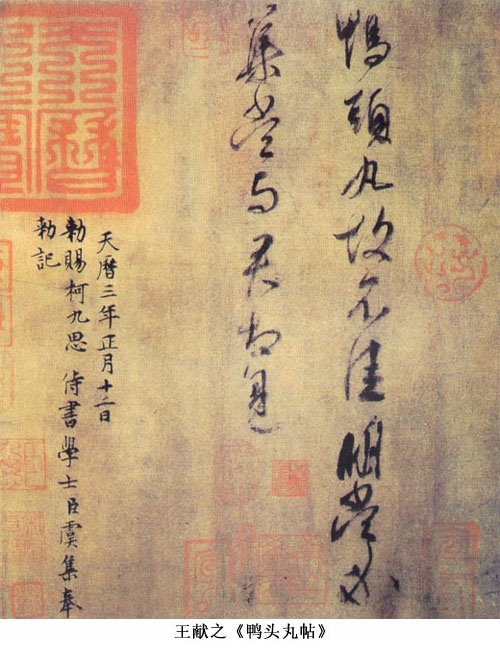 鴨頭丸故不佳明當必
集當与君相見
天曆三年正月十二日
勑賜柯九思 侍書學士臣虞集奉
勑記
王献之《鸭头丸帖》